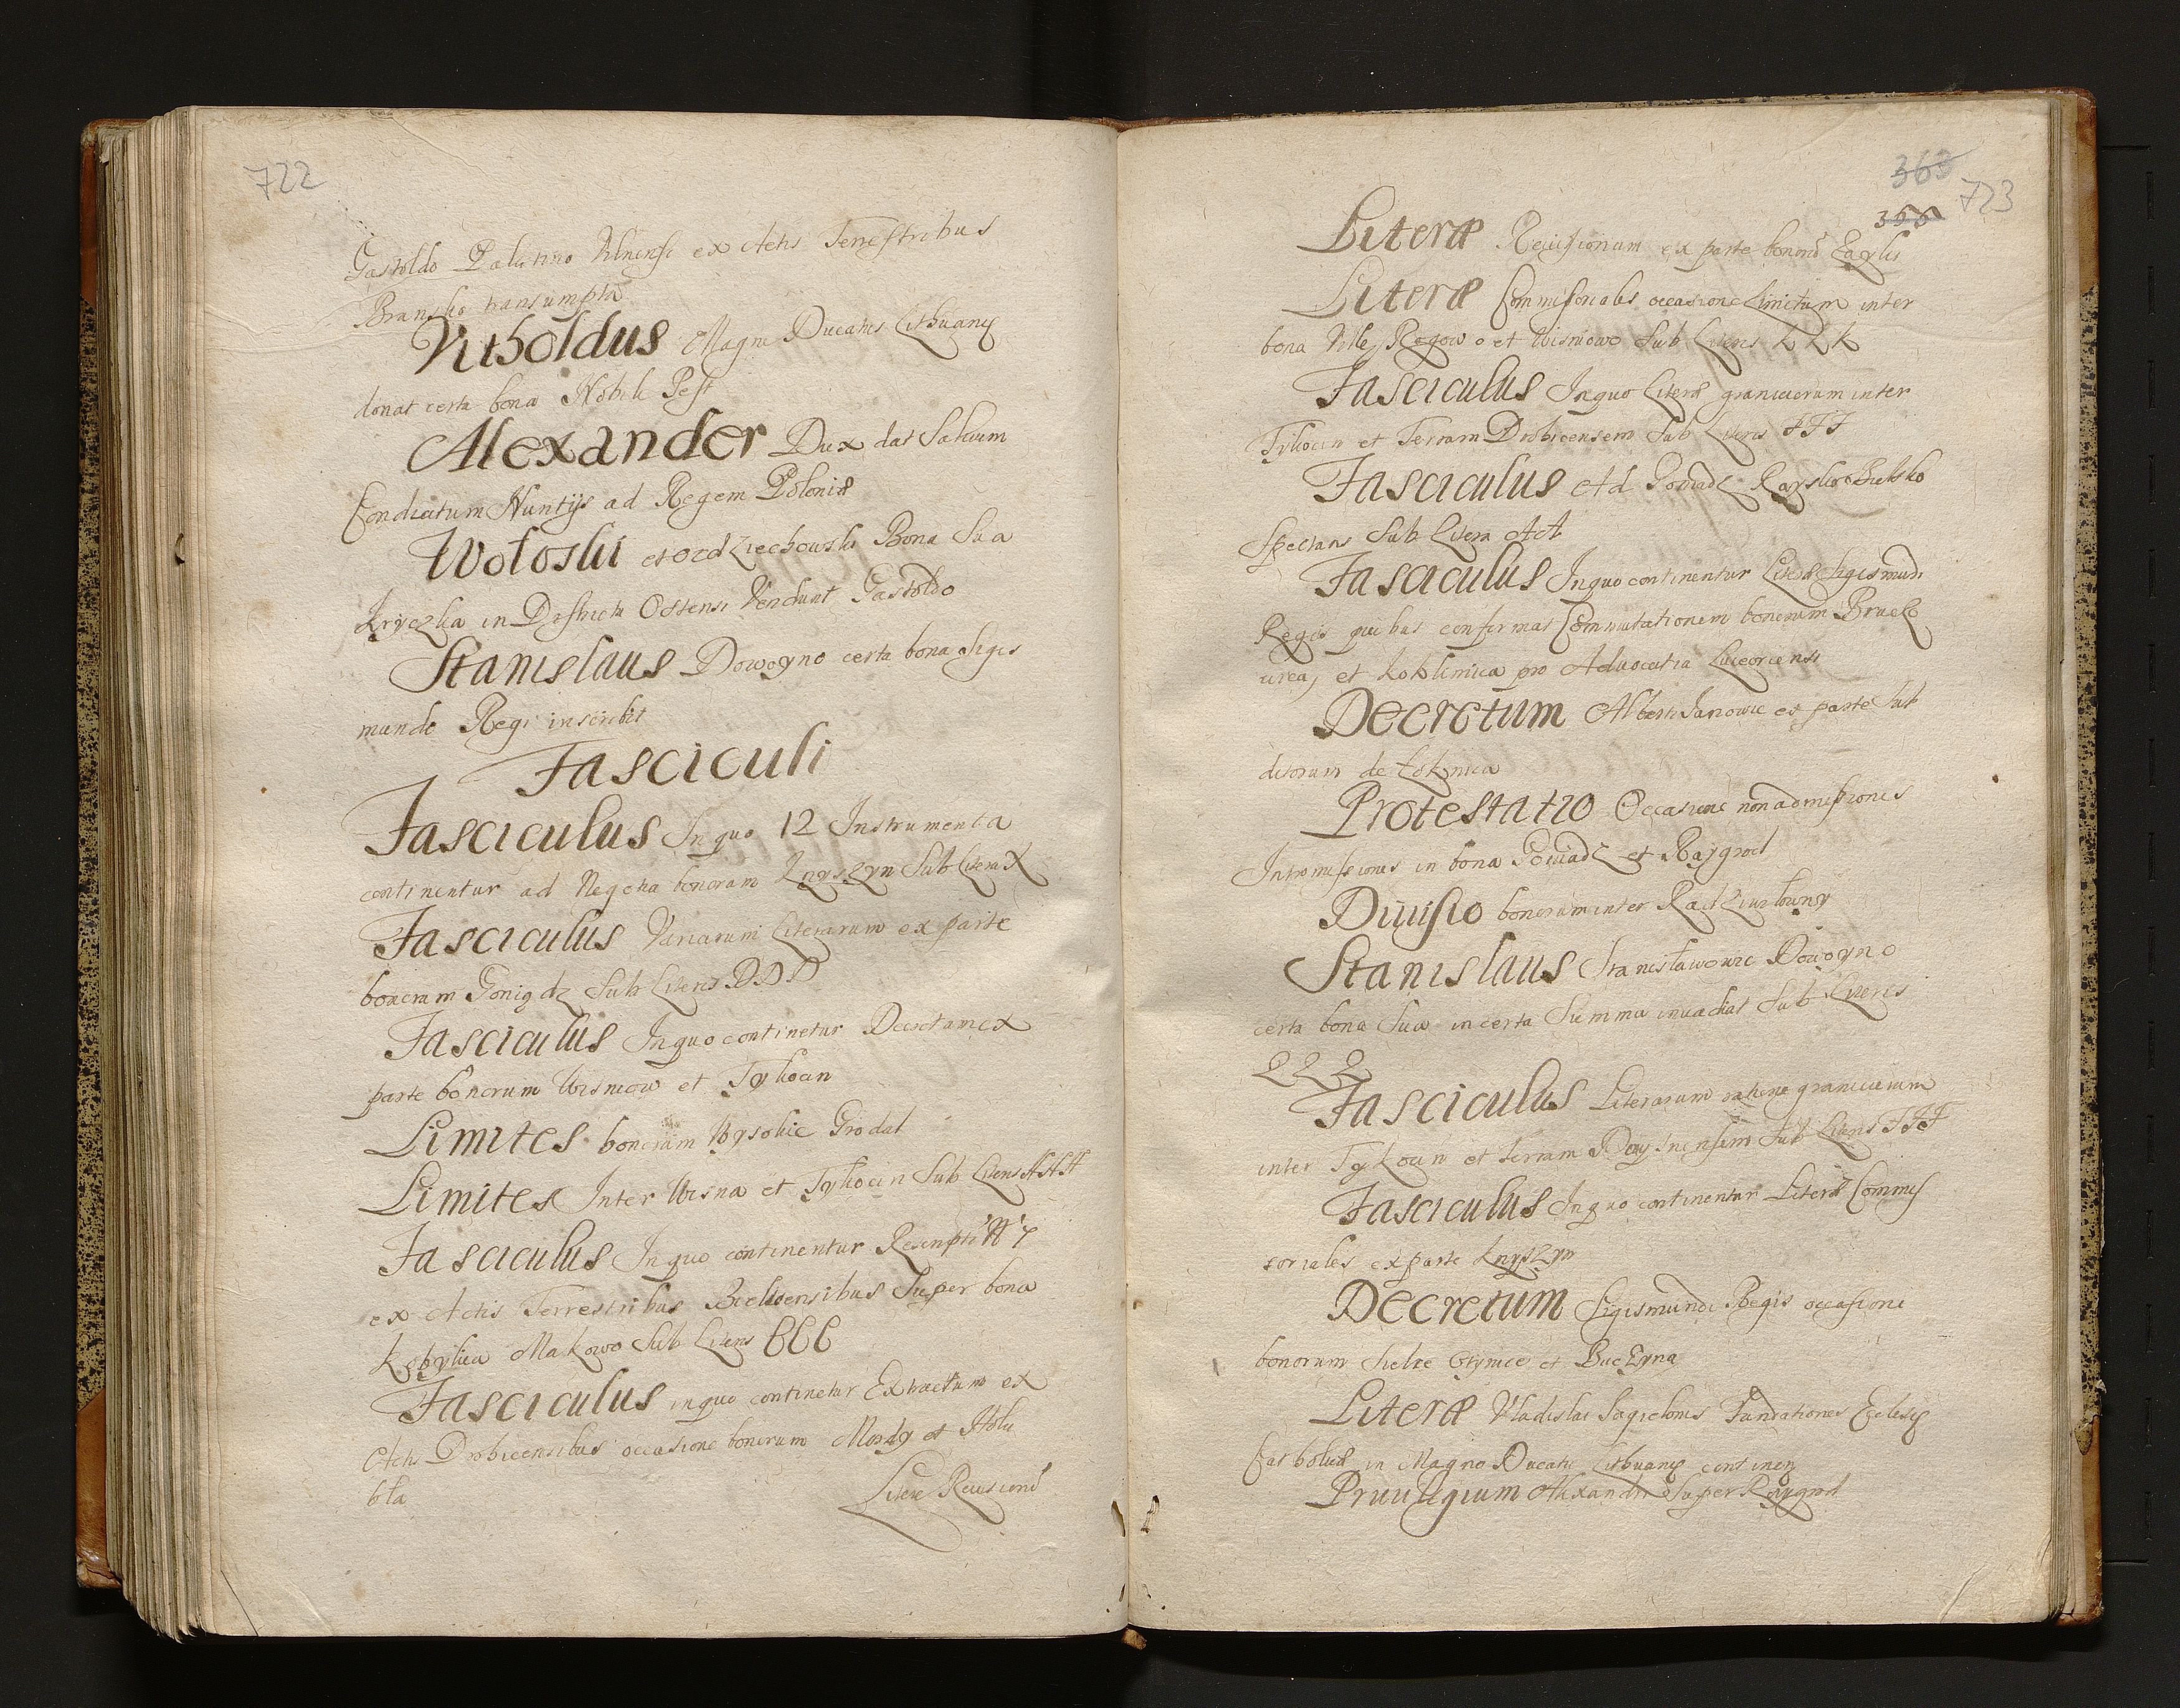 722
Gastoldo Palatino Vilnensi ex Actis Terrestribus
Bransko transumpta
Vitholdus Magni Ducatus Lithuaniæ
donat certa bona Nobili Pest
Alexander Dux dat Salvum
Conductum Nuntijs ad Regem Poloniæ
Wołoski et Bona Sua
Kryczka in Districtu Vendunt Gastoldo
Stanislaus Dowoyno certa bona Sigis
mundo Regi inscribit
Fasciculi
Fasciculus In quo 12 Instrumenta
continentur ad Negotia bonorum Knyszyn Sub Litera X
Fasciculus Variarum Literarum ex parte
bonorum Gonigdz Sub Literis DDD
Fasciculus In quo continetur Decretum ex
parte bonorum Wisniow et Tykocin
Limites bonorum Wysokie Grodat
Limites Inter Wisna et Tykocin Sub Literis HHH
Fasciculus In quo continentur
ex Actis Terrestribus Bielicensibus Super bona
Kobylica Makowo Sub Literis CCC
Fasciculus in quo continetur Extractum ex
Actis Drohicensibus occasione bonorum Mordy et Holu
bla
Literæ Reuisionū
363
366
723
Literæ Reuisionum ex parte bonorū
Literæ Commissoriales occasione limitum inter
bona Villæ Rogowo et Wisniowo Sub Literis KKK
Fasciculus In quo Literæ granicierum inter
Tykocin et Terram Drohicensem Sub Literis FFF
Fasciculus Ad Goniadz Raysko Bielsko
Spectans Sub Litera AA
Fasciculus In quo continentur Literæ Sigismundi
Regis quibus confirmat Commutationem bonorum
et Koblinica pro Aduocatia Luceoriensi
Decretum Alberti Janowic ex parte Sub
ditorum de
Protestatio Occasione non admissionis
Intromissionis in bona Goniadz et Raygrod
Diuisio bonorum inter
Stanislaus Stanisławowic Dowoyno
certa bona Sua in certa Summa inuadiat Sub Literis
QQQ
Fasciculus Literarum ratione granicierum
inter Tykocin et terram Sub Literis FFF
Fasciculus In quo continentur Literæ Commis
soriales ex parte Knyszyn
Decretum Sigismundi Regis occasione
bonorum et Buczyna
Literæ Vladislai Jagielonis Fundationes Eclesiæ
Catholicæ in Magno Ducatu Lithuaniæ continen
Priuilegium Alexandri Super Raygrod